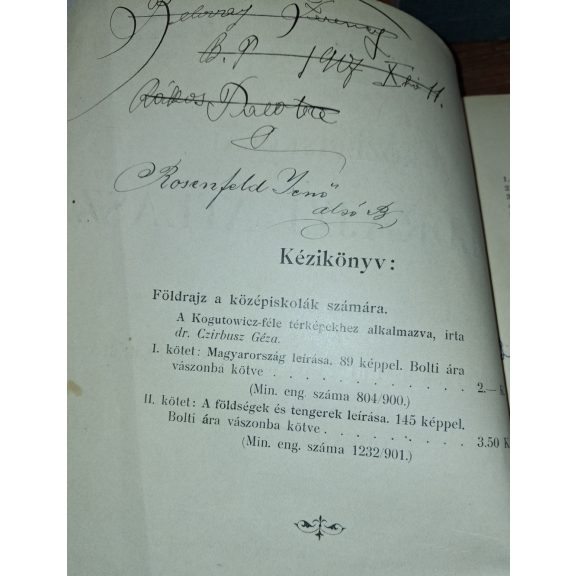 B.P 1907 X hó 11.
Rákos
Rosenfeld Jenő
alsó B
Kézikönyv:
Földrajz a középiskolák számára.
A Kogutowicz-féle térképekhez alkalmazva, irta
dr. Czirbusz Géza.
I. kötet: Magyarország leírása. 89 képpel. Bolti ára
vászonba kötve . . . . . . . . . . . . 2.—
(Min. eng. száma 804/900.)
II. kötet: A földségek és tengerek leírása. 145 képpel.
Bolti ára vászonba kötve . . . . . . . . 3.50 K
(Min. eng. száma 1232/901.)